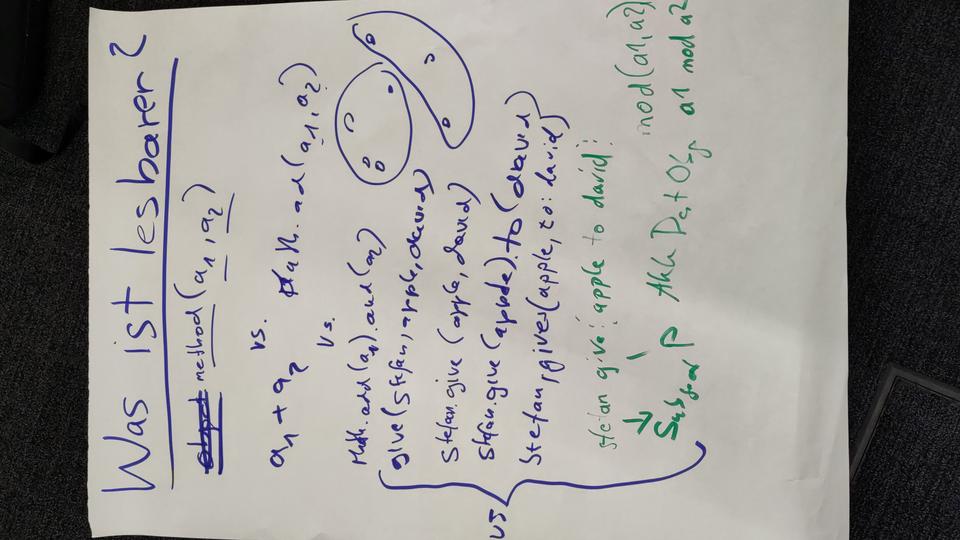 Was ist lesbarer?
method(a1, a2)
a1 + a2 vs. Math.add(a1, a2)
vs.
Math.add(a1).and(a2)
give(Stefan, apple, david)
Stefan.give(apple, david)
Stefan.give(apple).to(david)
Stefan,gives(apple, to: david)
vs
stefan give: apple to david:
mod(a1,a2)
Subj P Akk Dat Obj
a1 mod a2